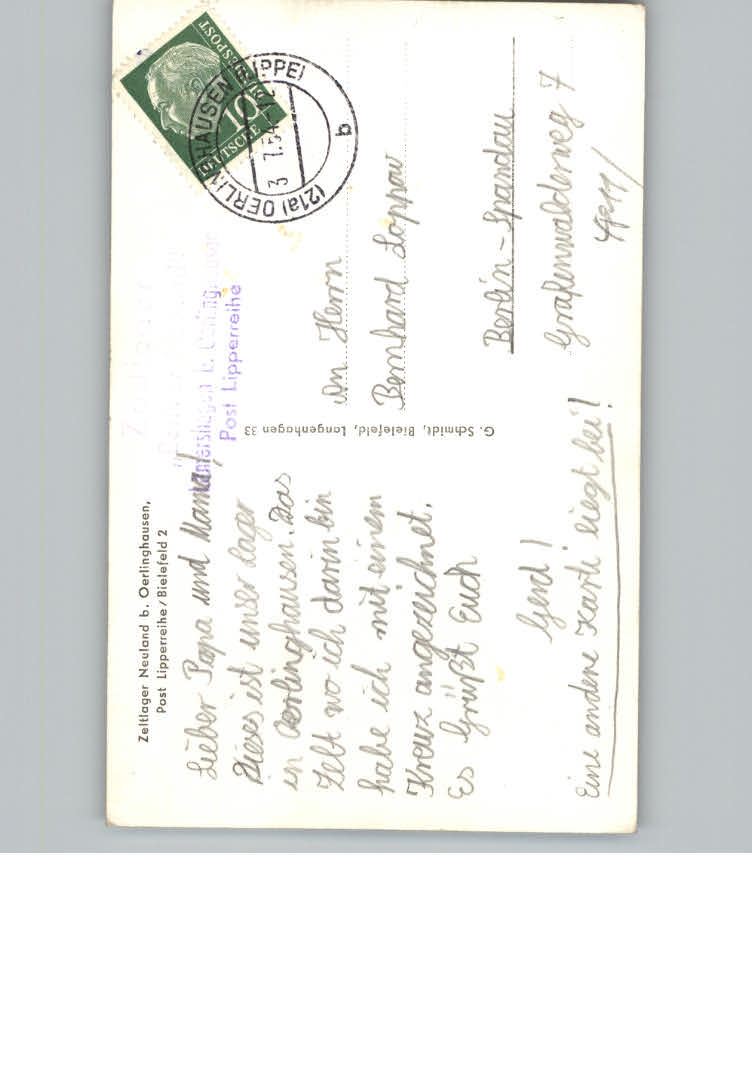 Zeltlager Neuland b. Oerlinghausen,
Post Lipperreihe/Bielefeld 2
Lieber Papa und Mama!
Dieses ist unser Lager
in Oerlinghausen. Das
Zelt wo ich darin bin
habe ich mit einem
Kreuz angezeichnet.
Es Grüßt Euch
Gerd!
Eine andere Karte liegt bei!
G. Schmidt, Bielefeld, Langenhagen 33
DEUTSCHE BUNDESPOST
10
(21a) OERLINGHAUSEN (LIPPE)
3 7.54
b
Post Lipperreihe
An Herrn
Bernhard Loppav
Berlin-Spandau
Grafenwalderweg 7